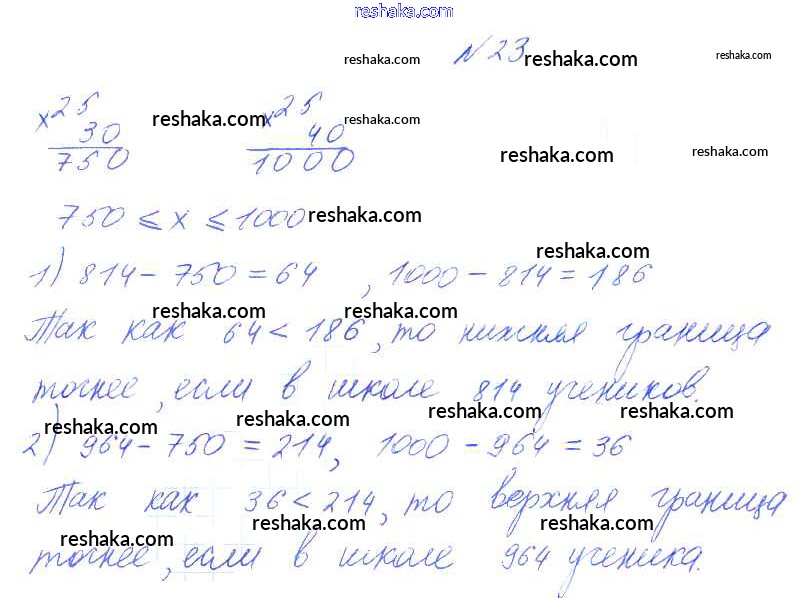 reshaka.com
№ 23
reshaka.com reshaka.com reshaka.com
x 25 reshaka.com x 25 reshaka.com
30 40
750 1000 reshaka.com reshaka.com
750 ⩽ x ⩽ 1000 reshaka.com
reshaka.com
1) 814 - 750 = 64, 1000 - 814 = 186
reshaka.com reshaka.com
Так как 64 < 186, то нижняя граница
точнее, если в школе 814 учеников.
reshaka.com reshaka.com reshaka.com reshaka.com
2) 964 - 750 = 214, 1000 - 964 = 36
Так как 36 < 214, то верхняя граница
reshaka.com reshaka.com reshaka.com
точнее, если в школе 964 ученика.